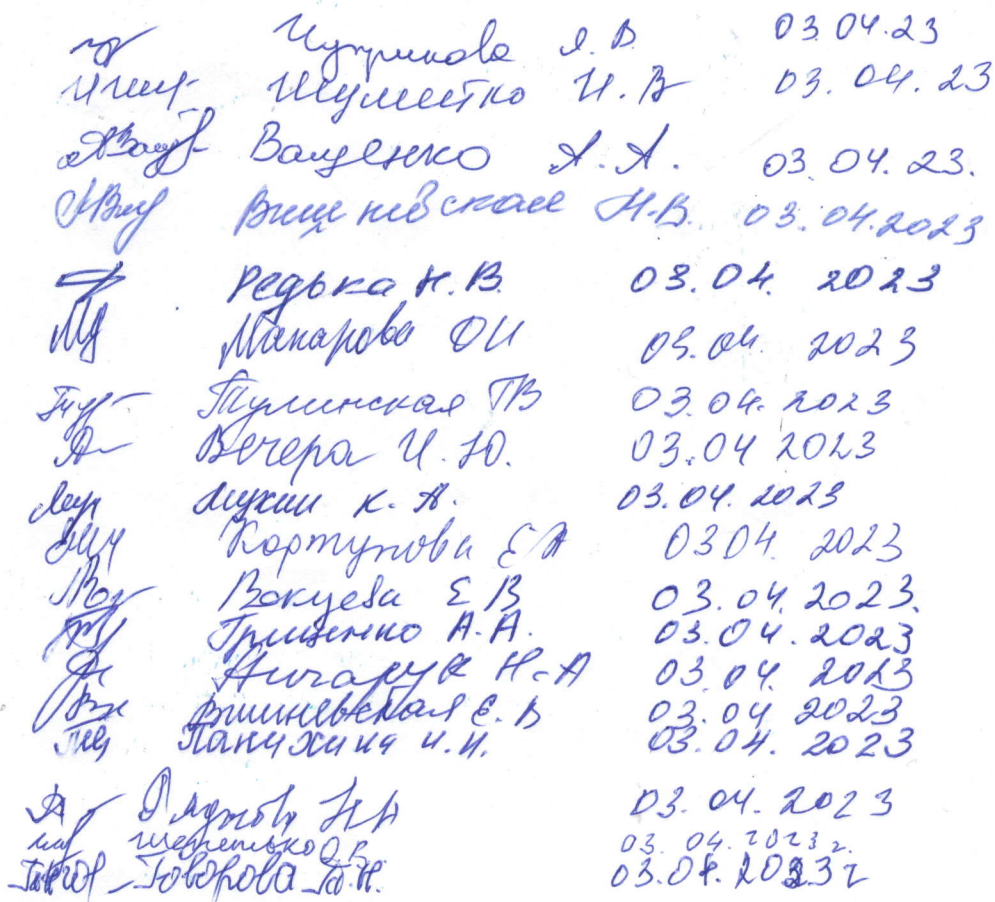 Чуприкова Я.В. 03.04.23
Шумейко И.В 03.04.23
Ващенко А.А. 03.04.23.
Вишневская Н.В. 03.04.2023
Редька Н.В. 03.04. 2023
Макарова ОИ 03.04. 2023
Тулинская ТВ 03.04. 2023
Вечера И.Ю. 03.04 2023
Лукин К.А. 03.04. 2023
Кортунова Е А 0304. 2023
Вакуева Е В 03.04. 2023.
Грищенко А.А. 03.04. 2023
Ничарук Н.А 03.04. 2023
Вишневская Е.В 03.04 2023
Панихина И.И. 03.04. 2023
НА 03.04. 2023
О.В. 03. 04. 2023 г.
Говорова Т.Н. 03.04.2023 г